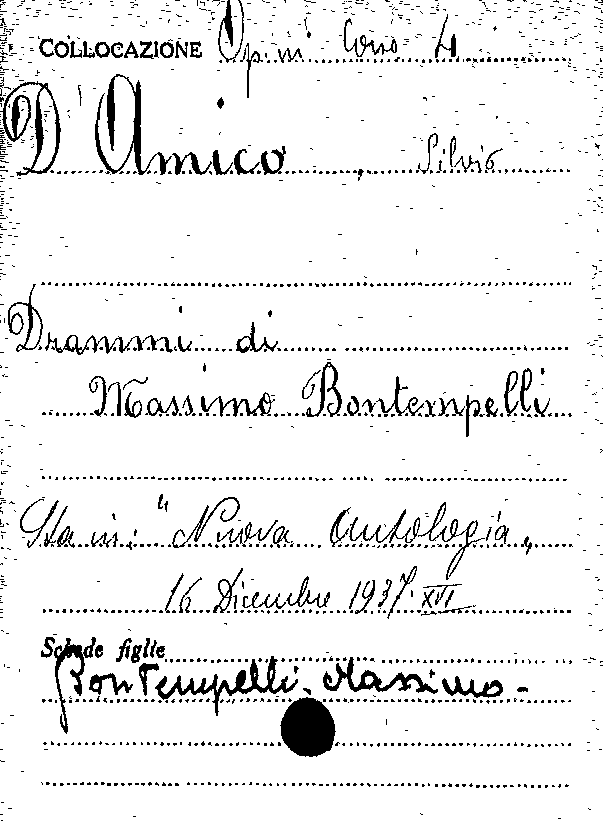 COLLOCAZIONE Op. in Cons. 4
D'Amico, Silvio
Drammi di
Massimo Bontempelli
Sta in: "Nuova Antologia„
16 Dicembre 1937. XVI
Schede figlie
Bontempelli. Massimo-